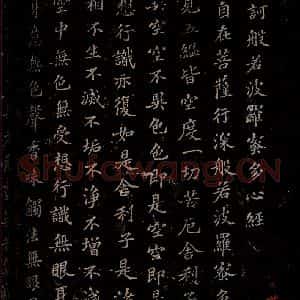 訶般若波羅蜜多心經
自在菩薩行深般若波羅蜜多
見五蘊皆空度一切苦厄舍利子
異空空不異色色即是空空即是
想行識亦復如是舍利子是法
相不生不滅不垢不淨不增不減
空中無色無受想行識無眼耳
身意無色聲香味觸法無眼
Shufawang.CN